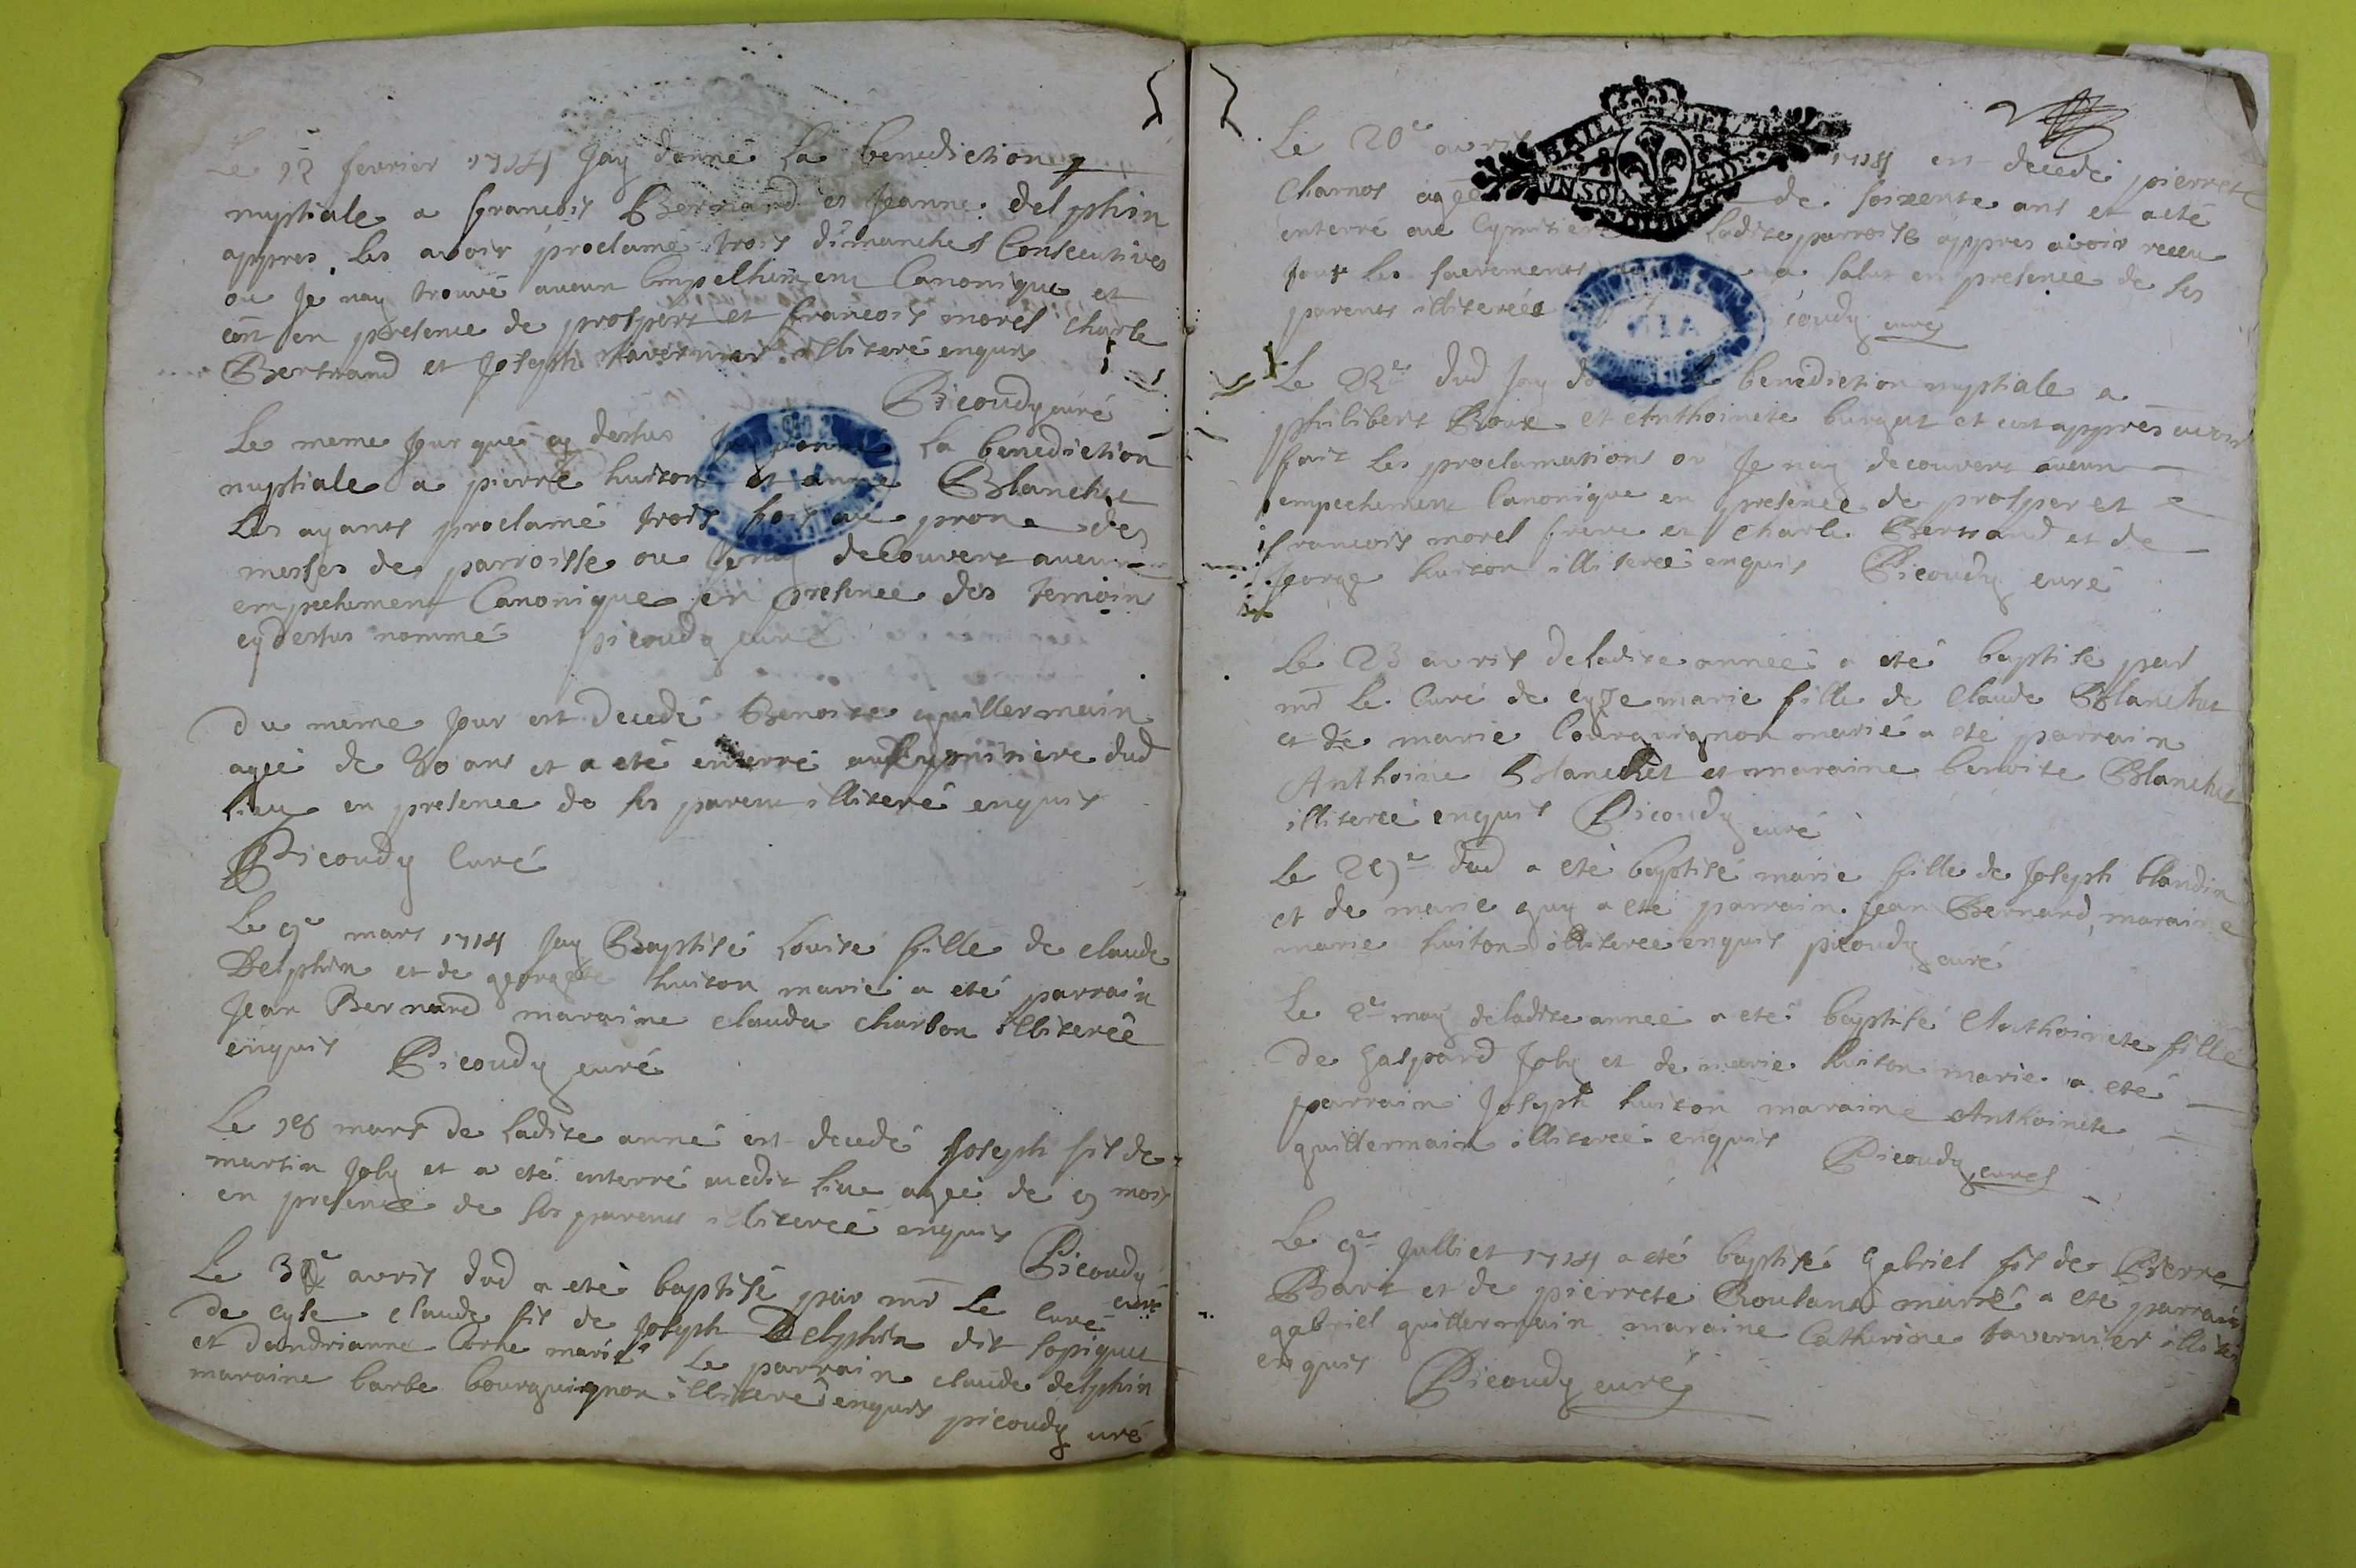 Le 12 fevrier 1714 Jay donné La benediction
nuptiale a francois Bernand et Jeanne Delphin
appres les avoir proclamé trois dimanches Consecutives
ou Je nay trouvé aucun Empelhement Canonique et
en presence de prospert et francois morel charle
Bertrand et Joseph tavernier illiteré enquis
Picoudy curé
Le meme Jour que cy dessus Jay donné La benediction
nuptiale a pierre huiton et anne Blanchet
Les ayants proclamé trois fois au prone des
messes de parroisse ou Je nay decouvert aucun
empechement Canonique en presence des temoins
cy dessus nommé picoudy curé
du meme Jour est decedé Benoite guillermain
ageé de 80 ans et a eté enterré au Cymitiere dud
Lieu en presence de ses parent illiteré enquis
Picoudy Curé
Le 9e mars 1714 Jay Baptisé Louise fille de claude
Delphin et de georgete huiton marié a eté parrain
Jean Bernand maraine clauda charbon illitereé
enquis Picoudy curé
Le 18 mars de Ladite anné est decedé Joseph fil de
martin Joly et a eté enterré audit Lieu ageé de 9 mois
en presence de ses parents illitereé enquis
Picoudy
curé
Le 3e avris dud a eté baptisé par mr Le Curé
de cyse claude fil de Joseph Delphin dit Lopiquet
et dandrianne Corne marié Le parrain claude delphin
maraine barbe bourguignon illitereé enquis picoudy curé
Le 20e avris 1714 est decedé pierrete
Charnos ageé de soixente ans et a eté
enterré au Cymitiere Ladite parroise appres avoir receu
tous les sacrements a salut en presence de ses
parents illitereés coudy curé
Le 22e dud Jay donné la benediction nuptiale a
philibert Roux et Anthoinete burgut et cest appres avoir
fait Les proclamations ou Je nay decouvert aucun
empechement Canonique en presence de prosper et
francois morel frere et charle Bertrand et de
george huiton illitereé enquis Picoudy curé
Le 23 avris de Ladite anneé a eté baptisé par
mr Le Curé de cyze marie fille de Claude Blanchet
et de marie bourguignon marié a eté parrain
Anthoine Blanchet et maraine benoite Blanchet
illitereé enquis Picoudy curé
Le 29e dud a eté baptisé marie fille de Joseph blandin
et de marie guy a eté parrain Jean Bernand, maraine
marie huiton illitereé enquis picoudy curé
Le 2e may de Ladite anneé a eté baptisé Anthoinete fille
de gaspard Joly et de marie huiton marié a eté
parrain Joseph huiton maraine Anthoinete
guillermain illitereé enquis Picoudy curé
Le 9e Julliet 1714 a eté baptisé gabriel fil de Pierre
Bart et de pierrete Rouland marié a eté parrain
gabriel guillermain maraine Catherine tavernier illite
enquis Picoudy curé